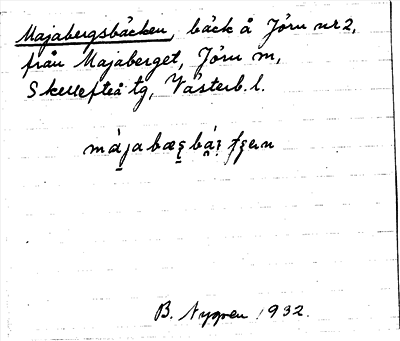 Majabergsbäcken, bäck å Jörn nr 2,
från Majaberget, Jörn sn,
Skellefteå tg, Västerb. l.
B. Nygren 1932.